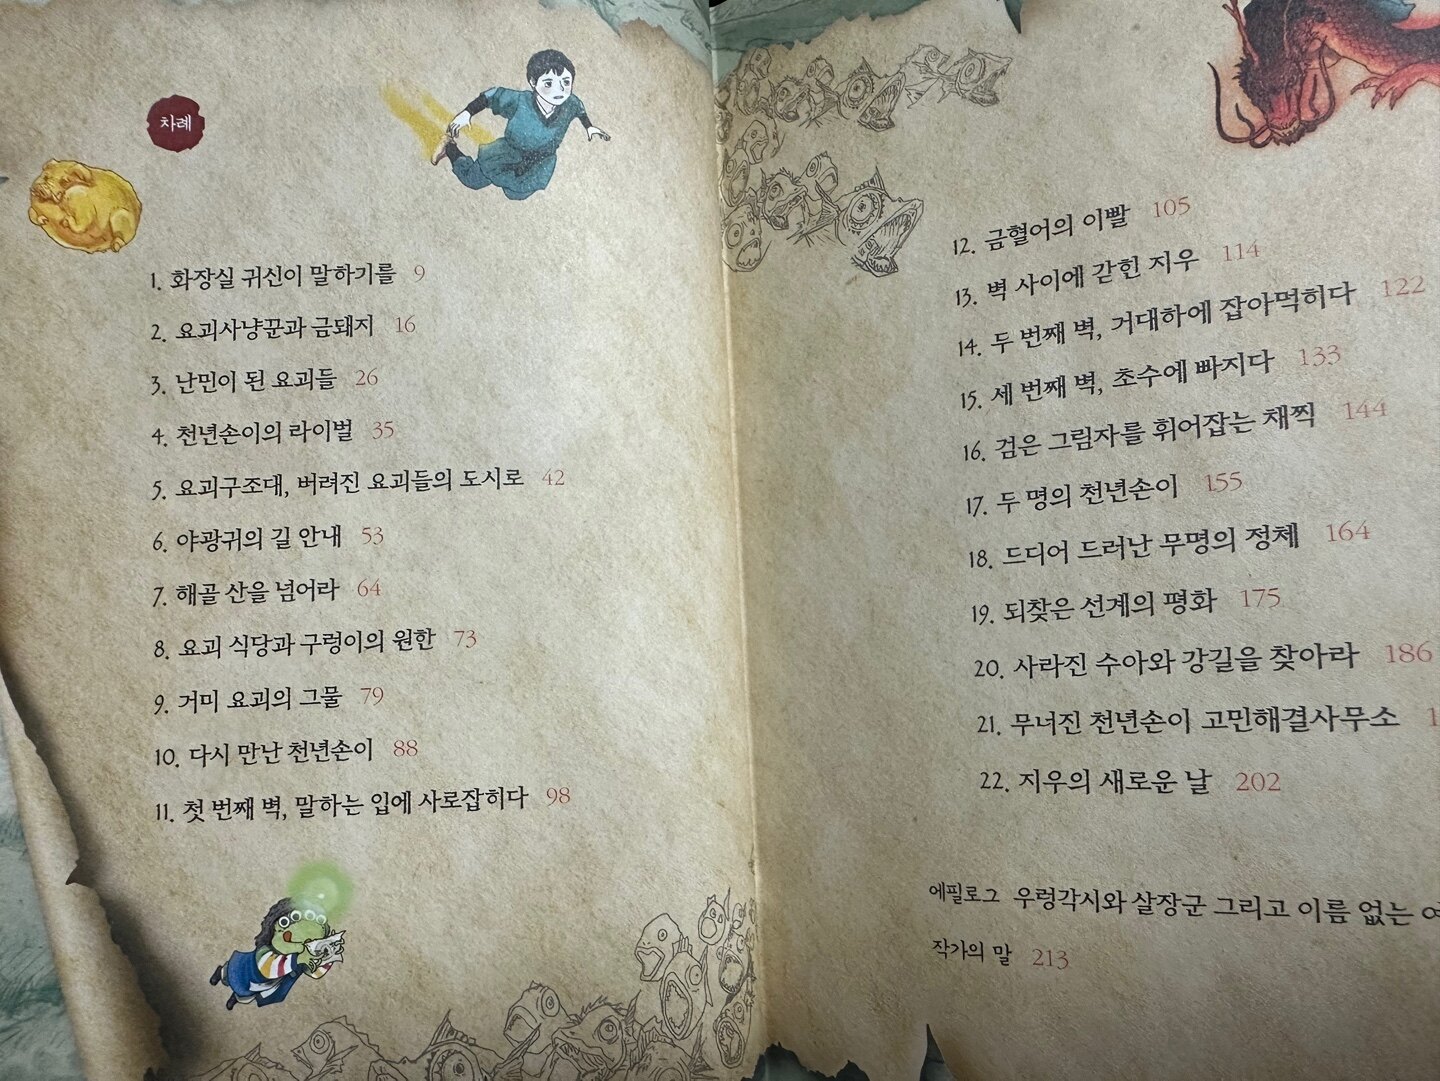 차례
1. 화장실 귀신이 말하기를 9
2. 요괴사냥꾼과 금돼지 16
3. 난민이 된 요괴들 26
4. 천년손이의 라이벌 35
5. 요괴구조대, 버려진 요괴들의 도시로 42
6. 야광귀의 길 안내 53
7. 해골 산을 넘어라 64
8. 요괴 식당과 구렁이의 원한 73
9. 거미 요괴의 그물 79
10. 다시 만난 천년손이 88
11. 첫 번째 벽, 말하는 입에 사로잡히다 98
12. 금혈어의 이빨 105
13. 벽 사이에 갇힌 지우 114
14. 두 번째 벽, 거대하에 잡아먹히다 122
15. 세 번째 벽, 초수에 빠지다 133
16. 검은 그림자를 휘어잡는 채찍 144
17. 두 명의 천년손이 155
18. 드디어 드러난 무명의 정체 164
19. 되찾은 선계의 평화 175
20. 사라진 수아와 강길을 찾아라 186
21. 무너진 천년손이 고민해결사무소
22. 지우의 새로운 날 202
에필로그 우렁각시와 살장군 그리고 이름 없는
작가의 말 213